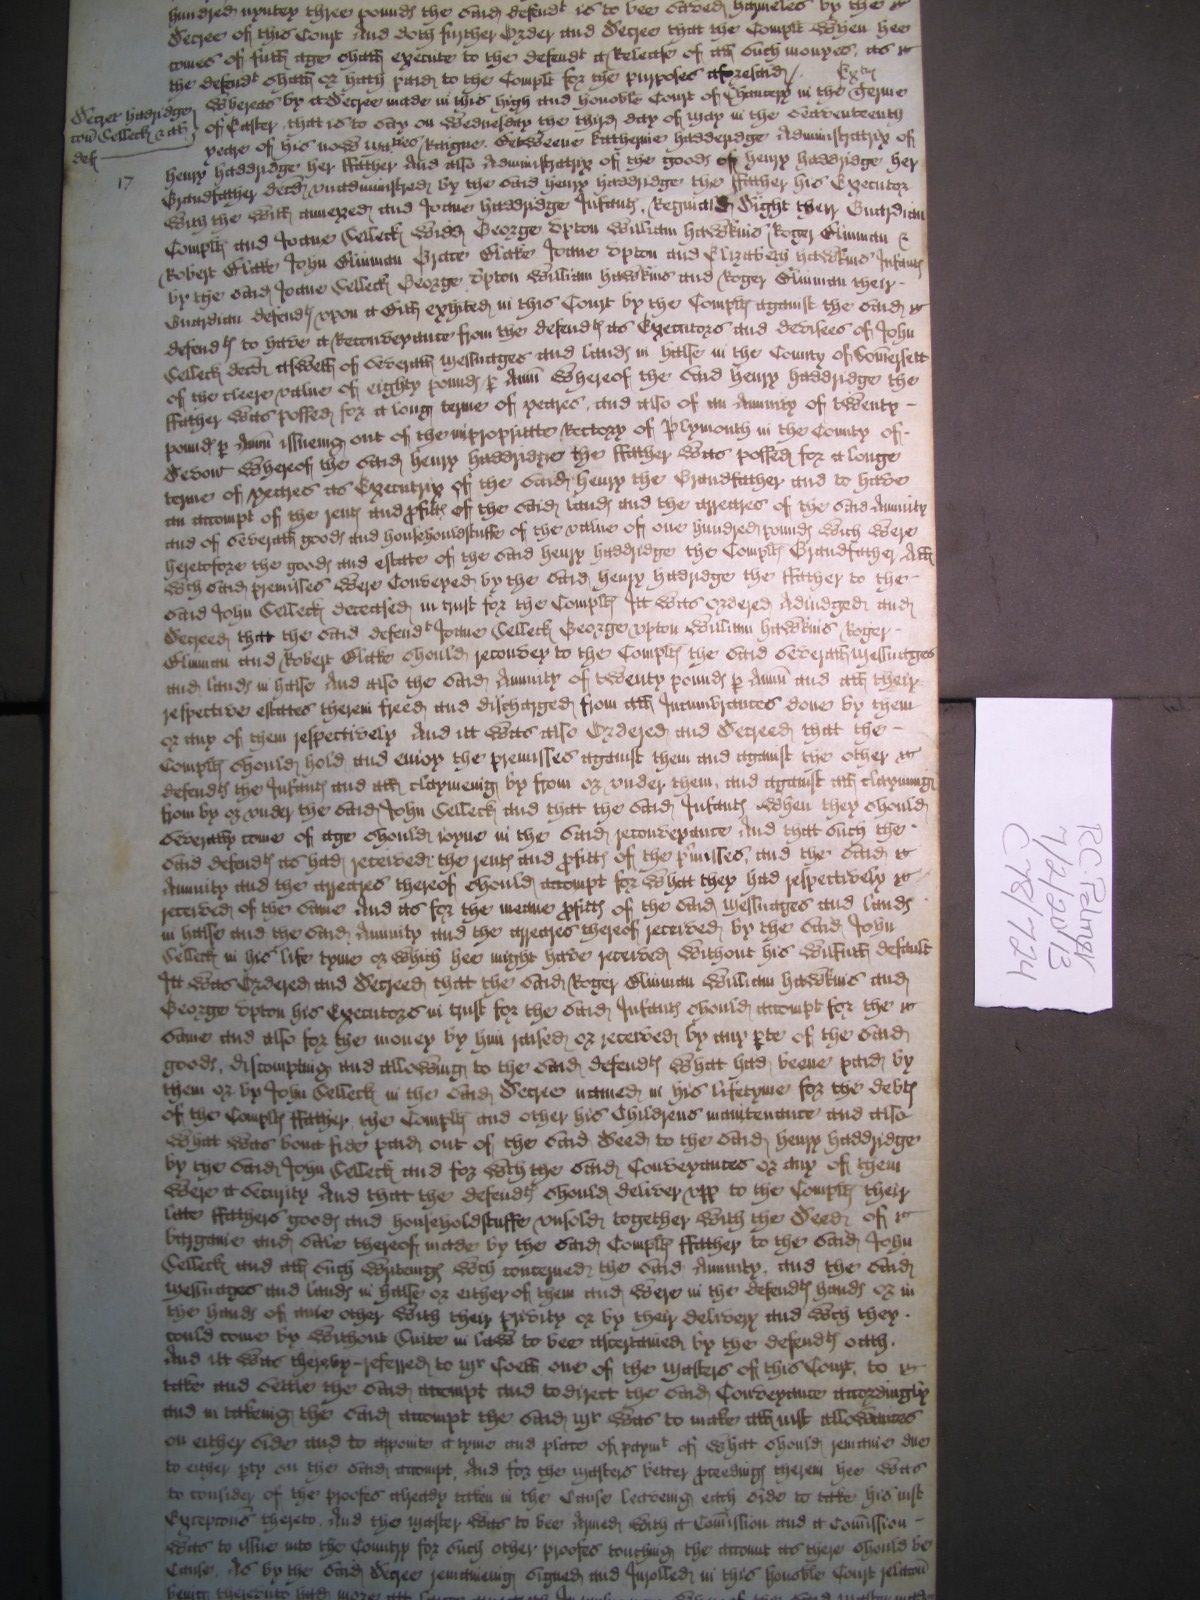 hundred ninety three pounds the said defendt is to bee saved harmeles by the
Decree of this Court And doth further Order and Decree that the Complt when hee
comes of full age shall execute to the defendt a Release of all such monyes, as
the defendt shall or hath paid to the Complt for the purposes aforesaid /.
Decret Hadridge
con Selleck & al
def
17
Whereas by a Decree made in this high and honoble Court of Chancery in the Terme
of Easter that is to say on Wednesday the third day of May in the Seaventeenth
yeare of his now maties Raigne. Betweene Katherine Hadderidge Administratrix of
Henry Haddridge her ffather And also Administratrix of the goods of Henry Haddridge her
Grandfather decd unadministred by the said Henry Haddridge the ffather his Executor
with the will annexed and Joane Haddridge Infants, Reginald Dight their Guardian
Complts and Joane Selleck widd George Upton William Hawkins Roger Glinman &
Robert Blake John Glinman Grace Blake Joane Upton and Elizabeth Hawkins Infants
by the said Joane Selleck George Upton William Hawkins and Roger Glinman their
Guardian defendts upon a Bill exhited in this Court by the Complts against the said
defendts to have a Reconveyance from the defendts as Executors and devisees of John
Selleck decd aswell of severall messuages and lands in halse in the County of Somersett
of the cleere value of eighty pounds p Annu whereof the said Henry Haddridge the
ffather was possed for a long terme of yeares, and also of an Annuity of twenty
pounds p Annu issueing out of the impropriate Rectory of Plymouth in the County of
Devon whereof the said Henry Haddridge the ffather was possed for a longe
terme of yeares as Executrix of the said Henry the Grandfather and to have
an accompt of the rents and profitts of the said lands and the arreares of the said Annuity
and of severall goods and househouldstuffe of the value of one hundred pounds wich were
heretofore the goods and estate of the said Henry Haddridge the Complts Grandfather All
wch said premisses were Conveyed by the said Henry Hadridge the ffather to the
said John Selleck deceased in trust for the Complts Itt was ordered Adiudged and
Decreed that the said defendts Joane Selleck George Upton William Hawkins Roger
Glinman and Robert Blake should reconvey to the Complts the said severall messuages
and lands in halse And also the said Annuity of twenty pounds p Annu and all their
respective estates therein freed and discharged from all Incumbrances done by them
or any of them respectively And itt was also Ordered and Decreed that the
Complts should hold and enioy the premisses against them and against the other
defendts the Infants and all claymeing by from or under them, and against all clayming
from by or under the said John Selleck and that the said Infants when they should
severally come of age should ioyne in the said reconveyance And that such the
said defendts as had received the rents and profitts of the p'misses, and the said
Annuity and the arreares thereof should accompt for what they had respectively
received of the same And as for the meane profitts of the said messuages and lands
in halse and the said Annuity and the arreares thereof received by the said John
Selleck in his life tyme or which hee might have received without his wilfull default
Itt was Ordered and Decreed that the said Roger Glinman William Hawkins and
George Upton his Executors in trust for the said Infants should accompt for the
same and also for the money by him raised or received by any pte of the said
goods, discompting and allowing to the said defendts what had beene paid by
them or by John Selleck in the said Decree named in his lifetyme for the debts
of the Complts ffather the Complts and other his Childrens maintenance and also
what was bona fide paid out of the said Deed to the said Henry Haddridge
by the said John Selleck and for wch the said Conveyances or any of them
were a security And that the defendts should deliver upp to the Complts their
late ffathers goods and householdstuffe unsold together with the Deed of
bargaine and sale thereof made by the said Complts ffather to the said John
Selleck and all such writeings wch concerned the said Annuity, and the said
messuages and lands in halse or either of them and were in the defendts hands or in
the hands of anie other with their privity or by their delivery and wch they
could come by without Suite in law to bee ascertained by the defendts oath.
And itt was thereby referred to Mr Coell one of the Masters of this Court, to
take and settle the said accompt and to direct the said Conveyance accordingly
and in takeing the said accompt the said Mr was to make all iust allowances
on either side and to appointe a tyme and place of paymt of what should remaine due
to either pty on the said accompt, And for the masters better proceeding therein hee was
to consider of the proofes already taken in the Cause leaveing each side to take his iust
Exceptions thereto. And the master was to bee Armed with a Comission and a Comission
was to issue into the Country for such other proofes touching the account as there should be
Cause. As by the said Decree remaineing signed and Inrolled in this honoble Court relacon
being thereunto had more att large
RC. Palmer
7/22/2013
C78/724